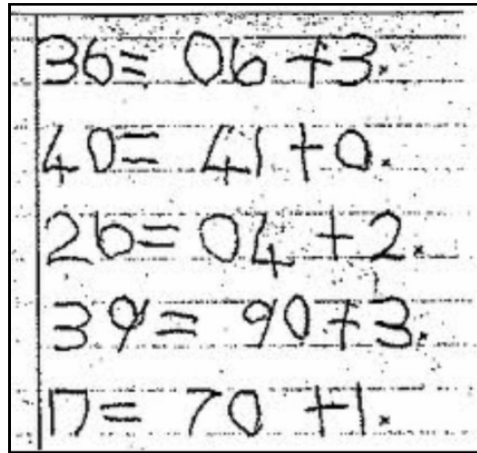 36= 06 +3.
40= 41+0.
26= 04 +2.
39= 90+3.
17= 70 +1.